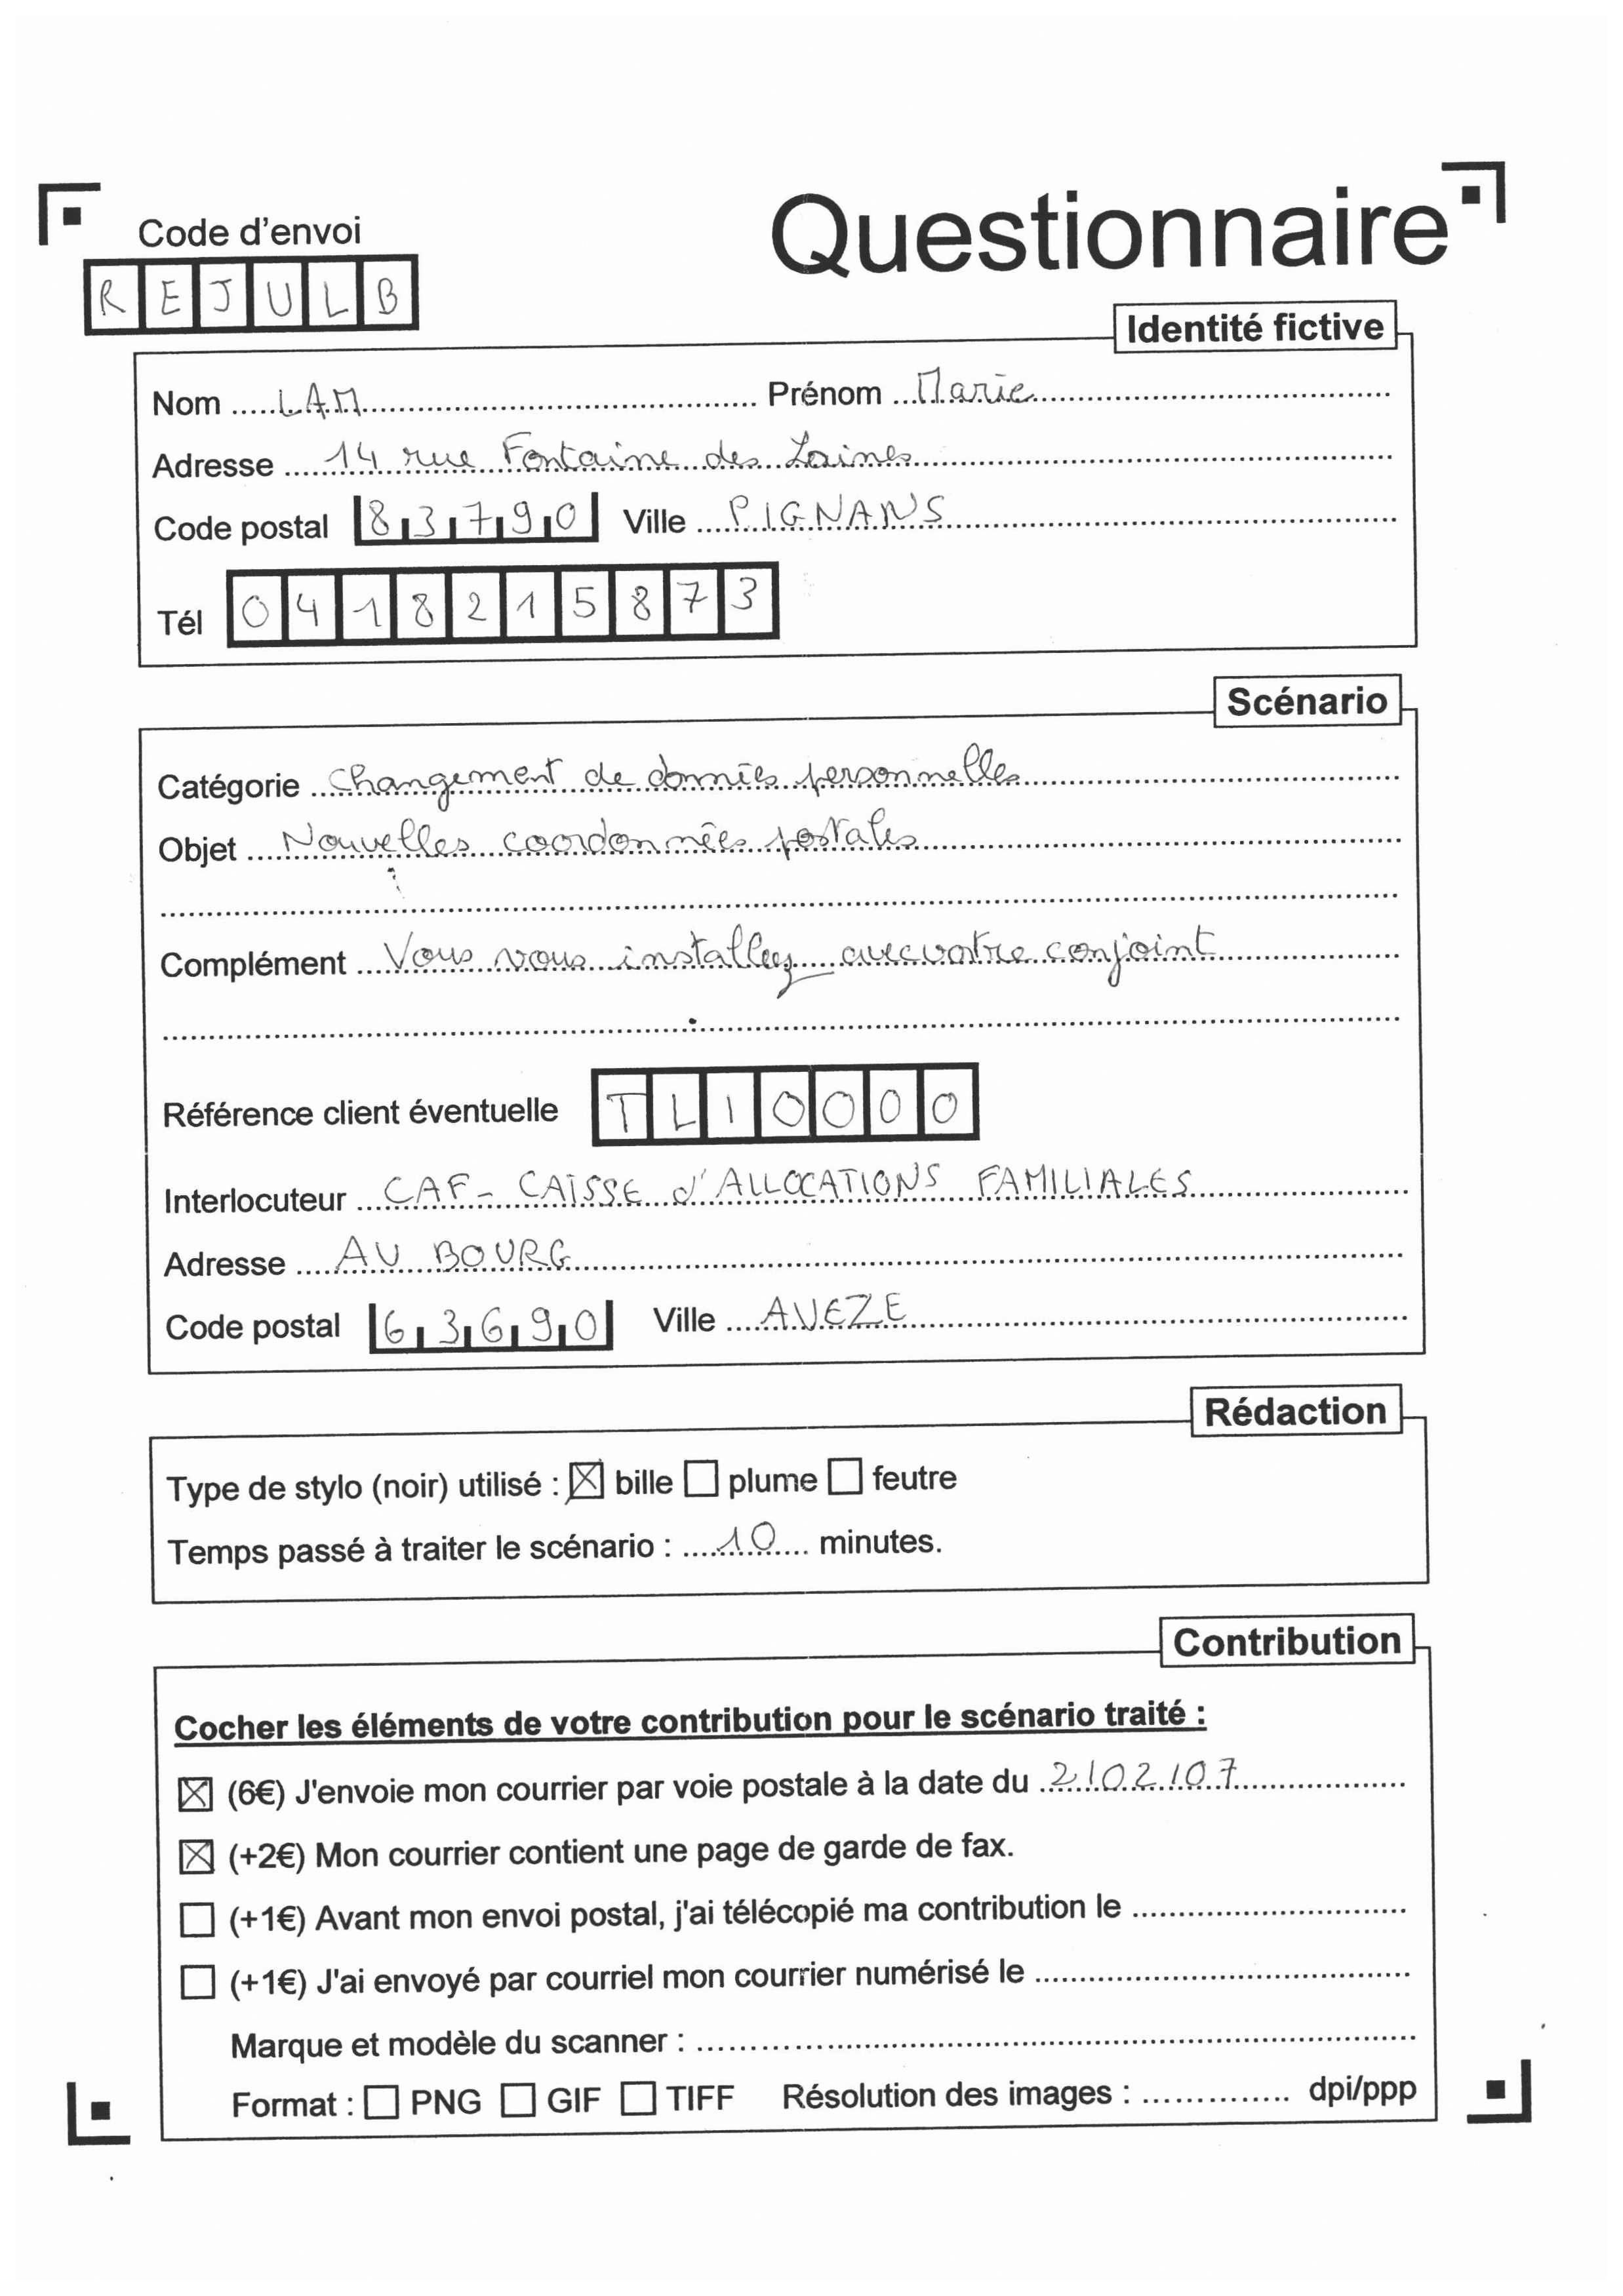 Code d'envoi
Questionnaire
R E J U L B
Identité fictive
Nom LAM Prénom Marie
Adresse 14 rue Fontaine des Laines
Code postal 83790 Ville PIGNANS
Tél 0418215873
Scénario
Catégorie Changement de données personnelles
Objet Nouvelles coordonnées postales
Complément Vous vous installez avec votre conjoint
Référence client éventuelle TL10000
Interlocuteur CAF - CAISSE d'ALLOCATIONS FAMILIALES
Adresse AU BOURG
Code postal 63690 Ville AVEZE
Rédaction
Type de stylo (noir) utilisé : ☒ bille ☐ plume ☐ feutre
Temps passé à traiter le scénario : 10 minutes.
Contribution
Cocher les éléments de votre contribution pour le scénario traité :
☒ (6€) J'envoie mon courrier par voie postale à la date du 2/02/07
☒ (+2€) Mon courrier contient une page de garde de fax.
☐ (+1€) Avant mon envoi postal, j'ai télécopié ma contribution le
☐ (+1€) J'ai envoyé par courriel mon courrier numérisé le
Marque et modèle du scanner :
Format : ☐ PNG ☐ GIF ☐ TIFF Résolution des images : dpi/ppp